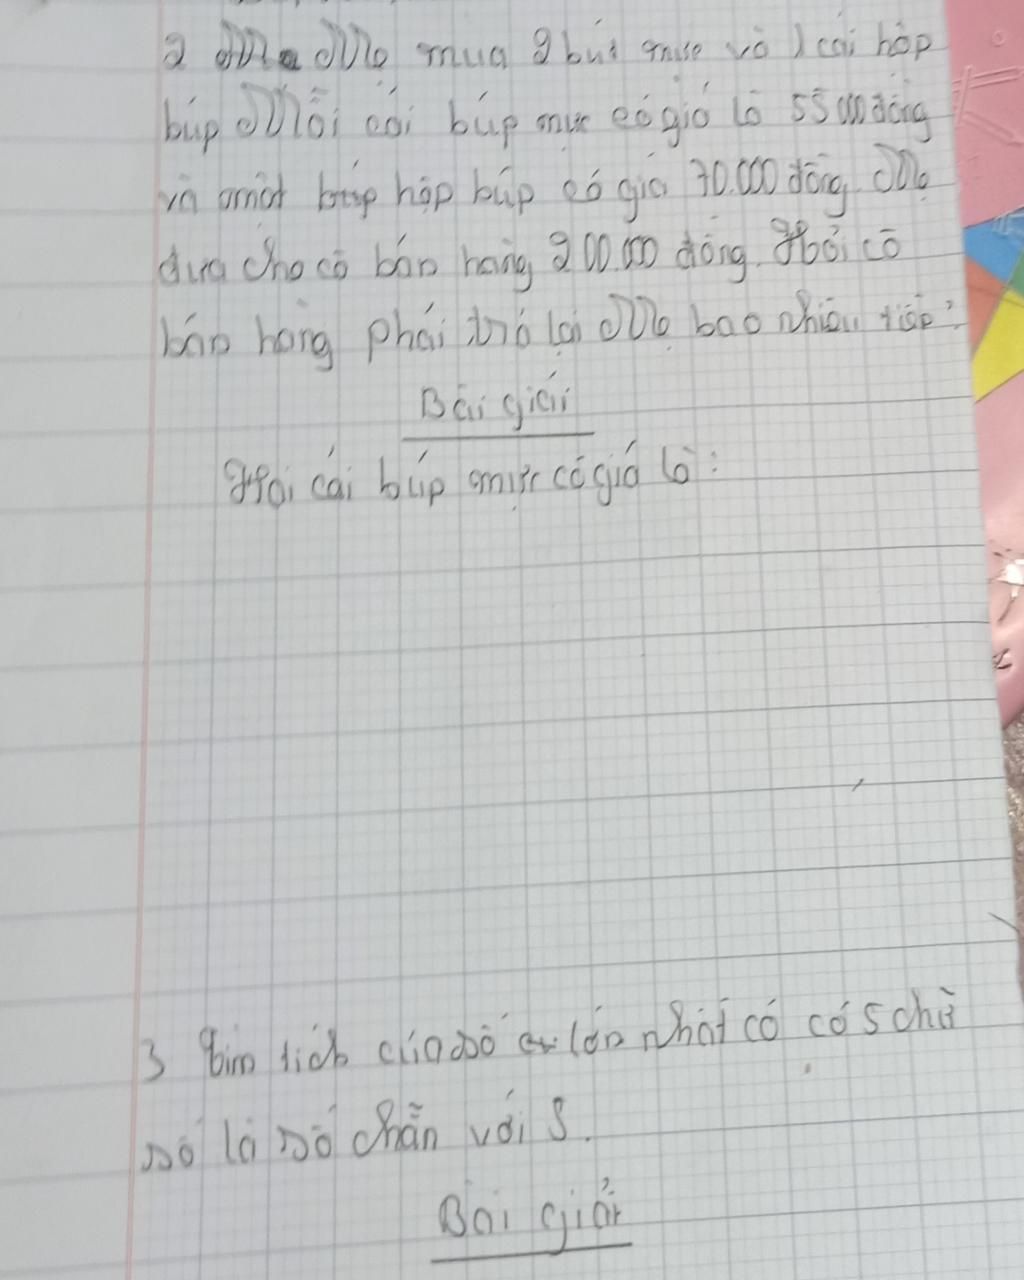 2 Mẹ mua 2 bút mực và 1 cái hôp
búp Mỗi cái búp mực có giá là 55 000 đồng
và một hộp búp có giá 70.000 đồng. Mẹ
đưa cho cô bán hàng 200.000 đồng. Hỏi cô
bán hàng phải trả lại Mẹ bao nhiêu tiếp?
Bài giải
Hai cái búp mực có giá là:
3 Tìm tích của số lớn nhất có có 5 chữ
số là số chẵn với 5.
Bài giải